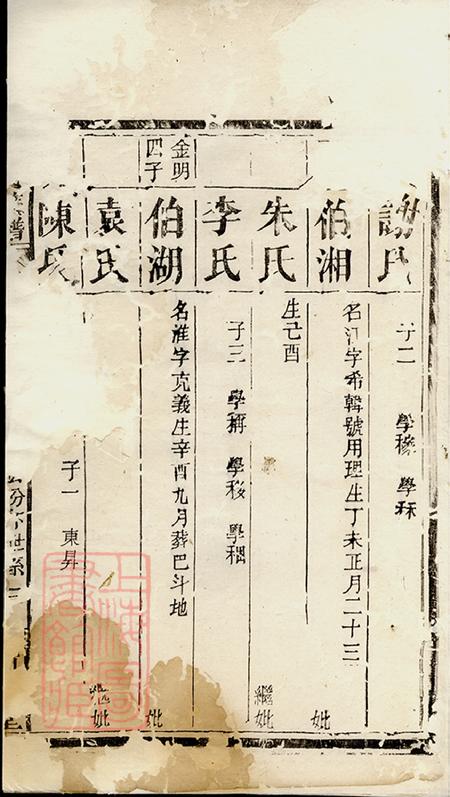 謝氏
子二 學穇 學秝
伯湘
名江字希韓號用理生丁未正月二十三
妣
朱氏
生己酉
繼妣
李氏
子三 學稱 學移 學稠
金明
四子
伯湖
名淮字克義生辛酉九月葬巴斗地
妣
袁氏
繼妣
陳氏
子一 東昇
譜
世系
上海圖書館藏